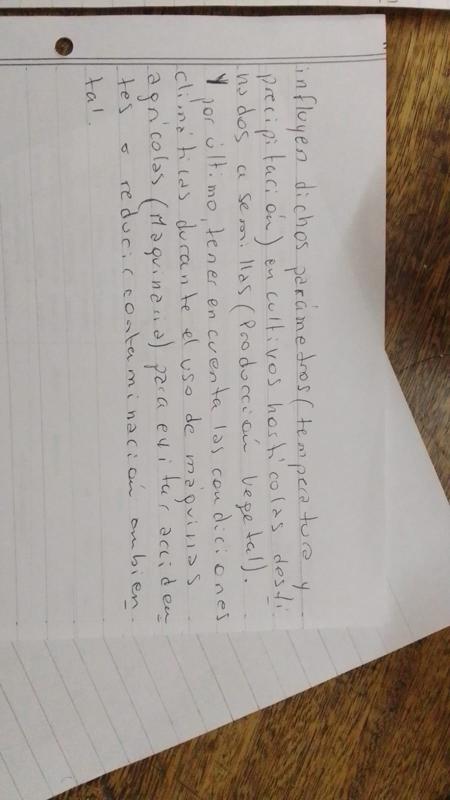 influyen dichos parámetros (temperatura y
precipitación) en cultivos hosticolas desti
nados a semillas (Producción vegetal).
y por último, tener en cuenta las condiciones
climáticas durante el uso de máquinas
agrícolas (Maquinaria) para evitar acciden
tes o reducir contaminación ambien
tal.